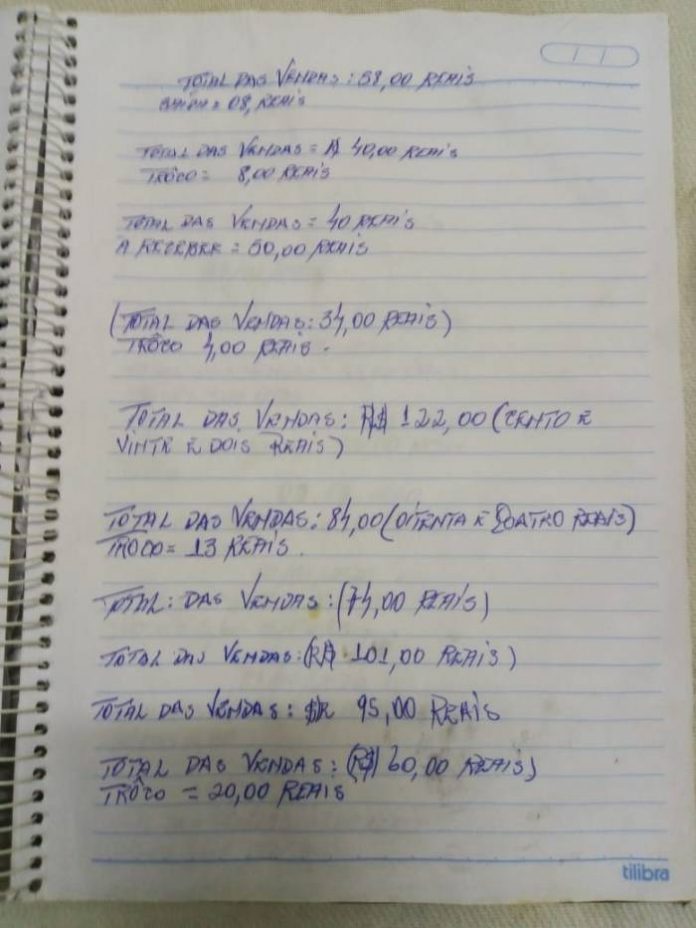 TOTAL DAS VENDAS: 58,00 REAIS
= 08, REAIS
TOTAL DAS VENDAS = R$ 40,00 REAIS
TRÔCO = 8,00 REAIS
TOTAL DAS VENDAS = 40 REAIS
A REZEBER = 50,00 REAIS
(TOTAL DAS VENDAS: 34,00 REAIS)
TRÔCO 4,00 REAIS.
TOTAL DAS VENDAS: R$ 122,00 (CENTO E
VINTE E DOIS REAIS)
TOTAL DAS VENDAS: 84,00 (OITENTA E QUATRO REAIS)
TROCO = 13 REAIS.
TOTAL: DAS VENDAS: (74,00 REAIS)
TOTAL DAS VENDAS: (R$ 101,00 REAIS)
TOTAL DAS VENDAS: $R 95,00 REAIS
TOTAL DAS VENDAS: (R$ 60,00 REAIS)
TRÔCO = 20,00 REAIS
tilibra